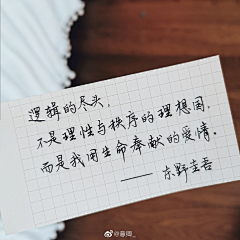 逻辑的尽头，
不是理性与秩序的理想国，
而是我用生命奉献的爱情。
—— 东野圭吾